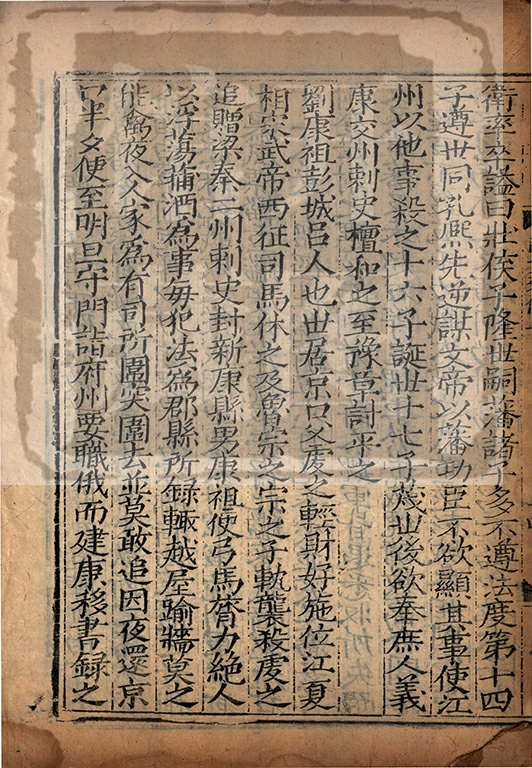 衛率卒謚曰壯侯子隆世嗣藩諸子多不遵法度第十四
子遵世同孔熙先逆謀文帝以藩功臣不欲顯其事使江
州以他事殺之十六子誕世十七子茂世後欲奉庶人義
康交州刺史檀和之至豫章討平之
劉康祖彭城呂人也世居京口父虔之輕財好施位江夏
相宋武帝西征司馬休之及魯宗之宗之子軌襲殺虔之
追贈梁秦二州刺史封新康縣男康祖便弓馬膂力絶人
以浮蕩蒱酒爲事每犯法爲郡縣所録輒越屋踰牆莫之
能禽夜入人家爲有司所圍突圍去並莫敢追因夜還京
口半夕便至明旦守門詣府州要職俄而建康移書録之